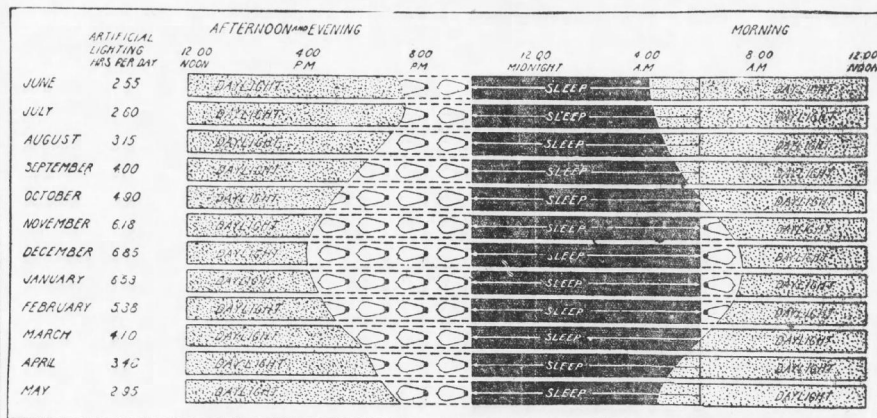 ARTIFICIAL LIGHTING HRS PER DAY
AFTERNOON AND EVENING
MORNING
12 00 NOON
4 00 P.M
8 00 PM
12 00 MIDNIGHT
4 00 A.M
8 00 A.M
12 00 NOON
JUNE 2 55 DAYLIGHT SLEEP DAYLIGHT
JULY 2 60 DAYLIGHT SLEEP DAYLIGHT
AUGUST 3 15 DAYLIGHT SLEEP DAYLIGHT
SEPTEMBER 4 00 DAYLIGHT SLEEP DAYLIGHT
OCTOBER 4 90 DAYLIGHT SLEEP DAYLIGHT
NOVEMBER 6 18 DAYLIGHT SLEEP DAYLIGHT
DECEMBER 6 85 DAYLIGHT SLEEP DAYLIGHT
JANUARY 6 53 DAYLIGHT SLEEP DAYLIGHT
FEBRUARY 5 38 DAYLIGHT SLEEP DAYLIGHT
MARCH 4 10 DAYLIGHT SLEEP DAYLIGHT
APRIL DAYLIGHT SLEEP DAYLIGHT
MAY 2 95 DAYLIGHT SLEEP DAYLIGHT